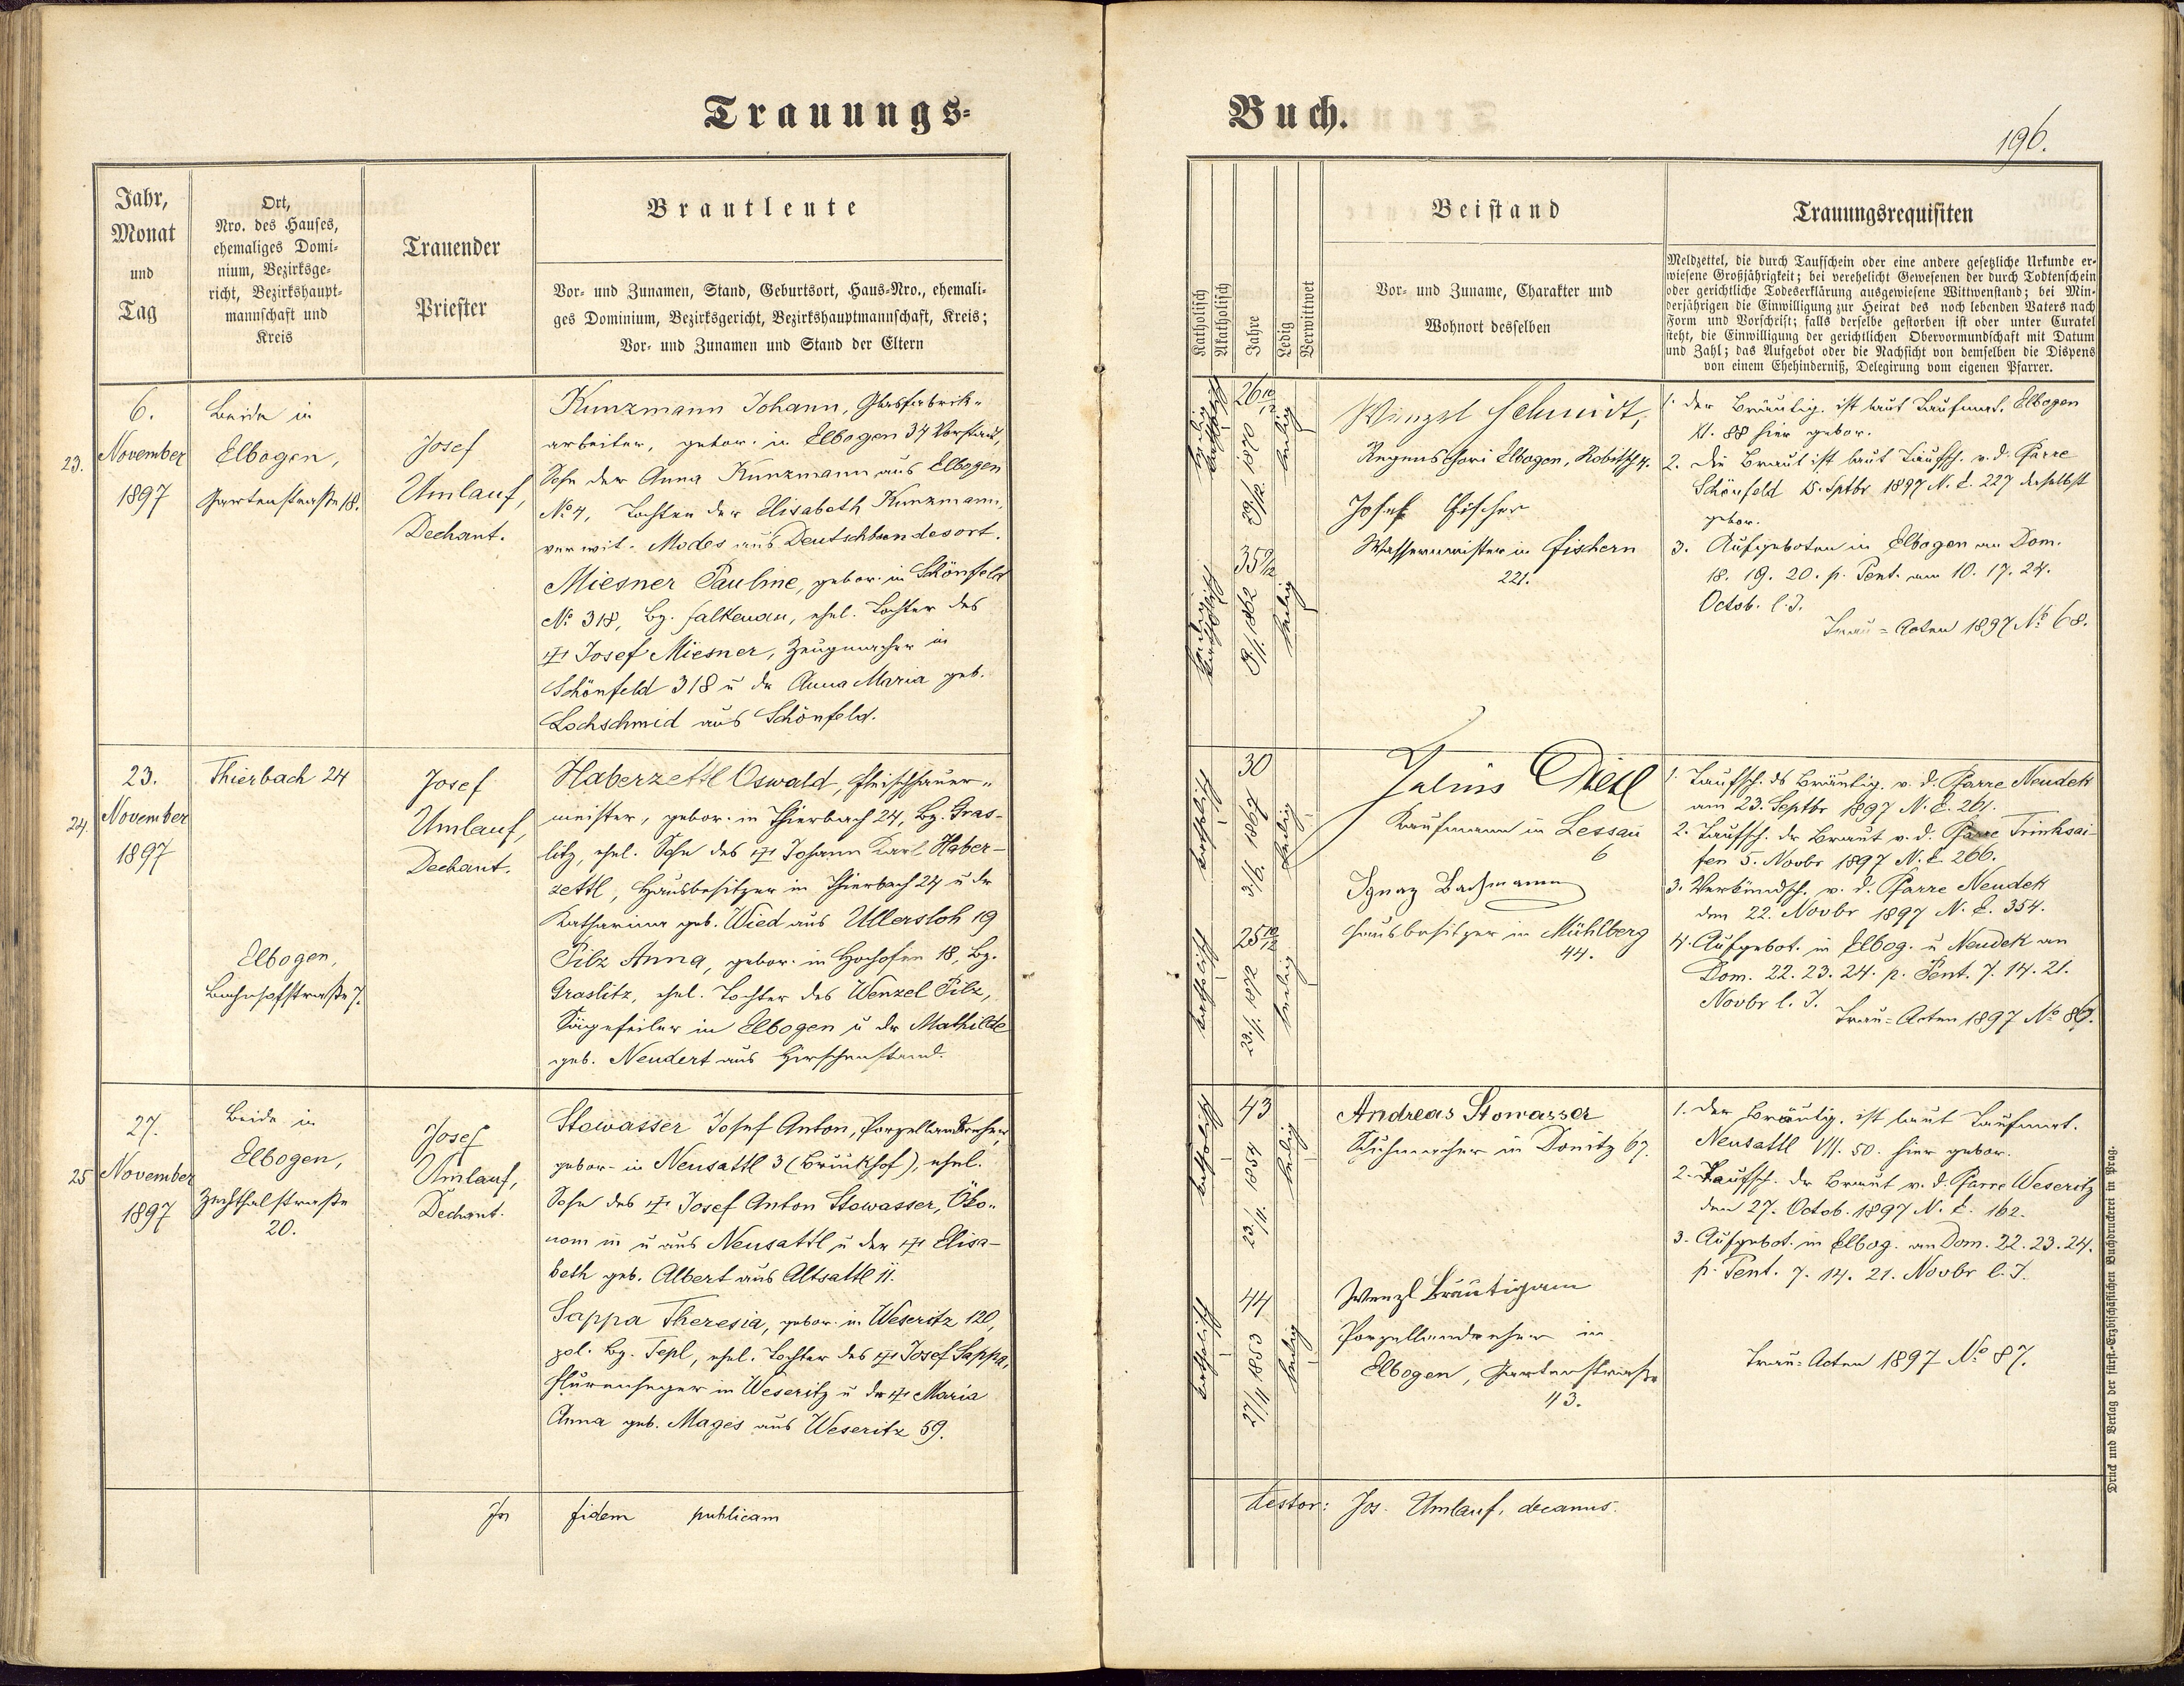 Trauungs-
Jahr,
Monat
und
Tag
Ort,
Nro. des Hauses,
ehemaliges Domi-
nium, Bezirksge-
richt, Bezirkshaupt-
mannschaft und
Kreis
Trauender
Priester
Brautleute
Vor- und Zunamen, Stand, Geburtsort, Haus-Nro., ehemali-
ges Dominium, Bezirksgericht, Bezirkshauptmannschaft, Kreis;
Vor- und Zunamen und Stand der Eltern
23.
6.
November
1897
Beide in
Elbogen,
Gartenstraße 18.
Josef
Umlauf,
Dechant.
Kunzmann Johann, Glasfabrik-
arbeiter, gebor. in Elbogen 34 Vorstadt,
Sohn der Anna Kunzmann aus Elbogen
No 4, Tochter der Elisabeth Kunzmann,
verwit. Modes aus Deutschbundesort.
Miesner Pauline, gebor. in Schönfeld
No 318, Bz. Falkenau, ehel. Tochter des
Josef Miesner, Zeugmacher in
Schönfeld 318 u. der Anna Maria geb.
Lochschmid aus Schönfeld.
24.
23.
November
1897
Thierbach 24
Elbogen,
Bahnhofstraße 7.
Josef
Umlauf,
Dechant.
Haberzettl Oswald, Fleischhauer-
meister, gebor. in Thierbach 24, Bz. Gras-
litz, ehel. Sohn des Johann Karl Haber-
zettl, Hausbesitzer in Thierbach 24 u. der
Katharina geb. Wied aus Ullersloh 19
Pilz Anna, gebor. in Hochofen 18, Bz.
Graslitz, ehel. Tochter des Wenzel Pilz,
Sägefeiler in Elbogen u. der Mathilde
geb. Neudert aus Hirschenstand.
25
27.
November
1897
Beide in
Elbogen,
Zechthalstraße
20.
Josef
Umlauf,
Dechant.
Stowasser Josef Anton, Porzellandreher,
gebor. in Neusattl 3 (Brunkhof), ehel.
Sohn des Josef Anton Stowasser, Öko-
nom in u. aus Neusattl u. der Elisa-
beth geb. Albert aus Altsattl 11.
Sappa Theresia, gebor. in Weseritz 120,
pol. Bz. Tepl, ehel. Tochter des Josef Sappa,
Flurenheger in Weseritz u. der Maria
Anna geb. Mages aus Weseritz 59.
In fidem publicam
Buch.
196.
Katholisch
Akatholisch
Jahre
Ledig
Verwittwet
Beistand
Vor- und Zuname, Charakter und
Wohnort desselben
Trauungsrequisiten
Meldzettel, die durch Taufschein oder eine andere gesetzliche Urkunde er-
wiesene Großjährigkeit; bei verehelicht Gewesenen der durch Todtenschein
oder gerichtliche Todeserklärung ausgewiesene Wittwenstand; bei Min-
derjährigen die Einwilligung zur Heirat des noch lebenden Vaters nach
Form und Vorschrift; falls derselbe gestorben ist oder unter Curatel
steht, die Einwilligung der gerichtlichen Obervormundschaft mit Datum
und Zahl; das Aufgebot oder die Nachsicht von demselben die Dispens
von einem Ehehinderniß, Delegirung vom eigenen Pfarrer.
katholisch
26 10/12
ledig
katholisch
35 9/12
8/1. 1862
ledig
Wenzl Schmidt,
Regenschori Elbogen, Robitsch 4.
Josef Fischer
Wassermeister in Fischern
221.
1. Der Bräutig. ist laut Taufmat. Elbogen
XI. 88 hier gebor.
2. Die Braut ist laut Taufsch. v. d. Pfarre
Schönfeld 15. Sptbr 1897 N. E. 227 daselbst
gebor.
3. Aufgeboten in Elbogen an Dom.
18. 19. 20. p. Pent. am 10. 17. 24.
Octob. l. J.
Trau-Acten 1897 No 68.
katholisch
30
3/9. 1867
ledig
katholisch
25 10/12
23/1. 1872
ledig
Julius Dietl
Kaufmann in Lessau
6
Ignaz Bachmann
Hausbesitzer in Mühlberg
44.
1. Taufsch. ds Bräutig. v. d. Pfarre Neudek
am 23. Septbr 1897 N. E. 261.
2. Taufsch. der Braut v. d. Pfarre Trinksai-
fen 5. Novbr 1897 N. E. 266.
3. Verkündsch. v. d. Pfarre Neudek
den 22. Novbr 1897 N. E. 354.
4. Aufgebot. in Elbog. u. Neudek an
Dom. 22. 23. 24. p. Pent. 7. 14. 21.
Novbr l. J.
Trau-Acten 1897 No 86.
katholisch
43
1854
ledig
katholisch
44
27/11 1853
ledig
Andreas Stowasser
Schuhmacher in Donitz 67.
Wenzl Bräutigam
Porzellandreher in
Elbogen, Gartenstraße
43.
1. Der Bräutig. ist laut Taufmat.
Neusattl VII. 50. hier gebor.
2. Taufsch. der Braut v. d. Pfarre Weseritz
den 27. Octob. 1897 N. E. 162.
3. Aufgebot. in Elbog. an Dom. 22. 23. 24.
p. Pent. 7. 14. 21. Novbr l. J.
Trau-Acten 1897 No 87.
testor: Jos. Umlauf, decanus.
Druck und Verlag der fürst.-Erzbischäflichen Buchdruckerei in Prag.